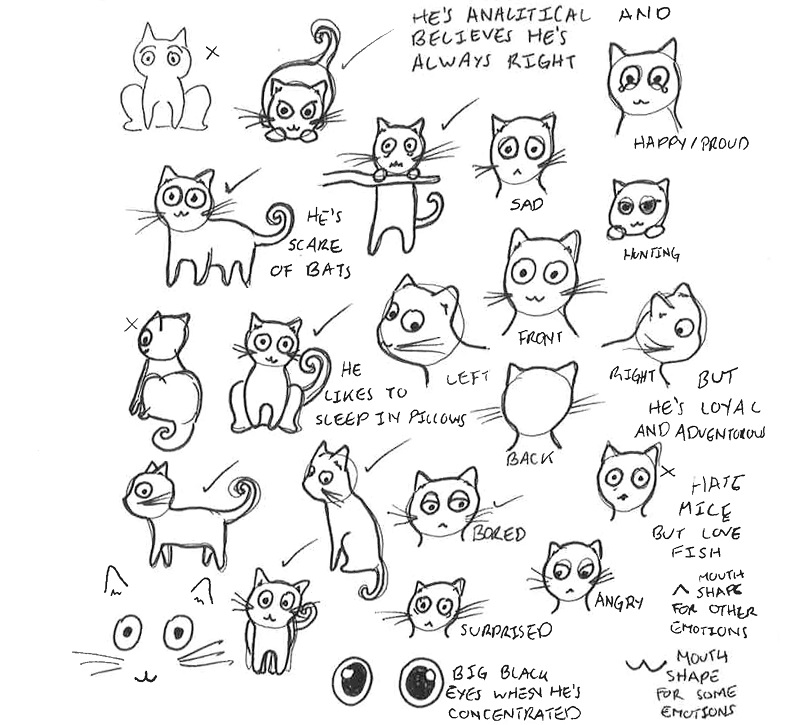 HE'S ANALITICAL AND
BELIEVES HE'S
ALWAYS RIGHT
HAPPY/PROUD
SAD
HE'S
SCARE
OF BATS
HUNTING
FRONT
LEFT
RIGHT
BUT
HE'S LOYAL
AND ADVENTOROUS
HE
LIKES TO
SLEEP IN PILLOWS
BACK
HATE
MICE
BUT LOVE
FISH
BORED
ANGRY
SURPRISED
MOUTH
SHAPE
FOR OTHER
EMOTIONS
MOUTH
SHAPE
FOR SOME
EMOTIONS
BIG BLACK
EYES WHEN HE'S
CONCENTRATED